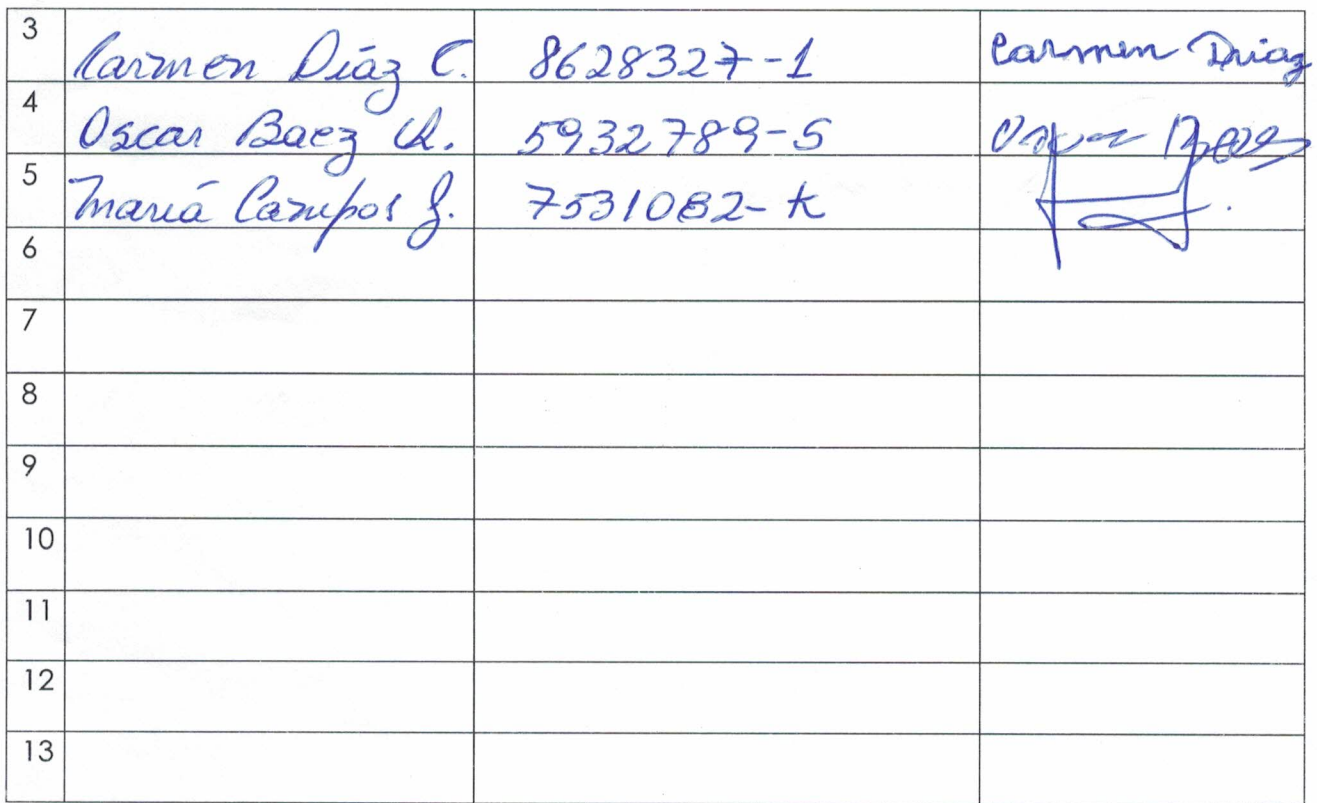 3 Carmen Díaz C. 8628327-1 Carmen Diaz
4 Oscar Baez 5932789-5
5 María Campos 7531082-K
6
7
8
9
10
11
12
13